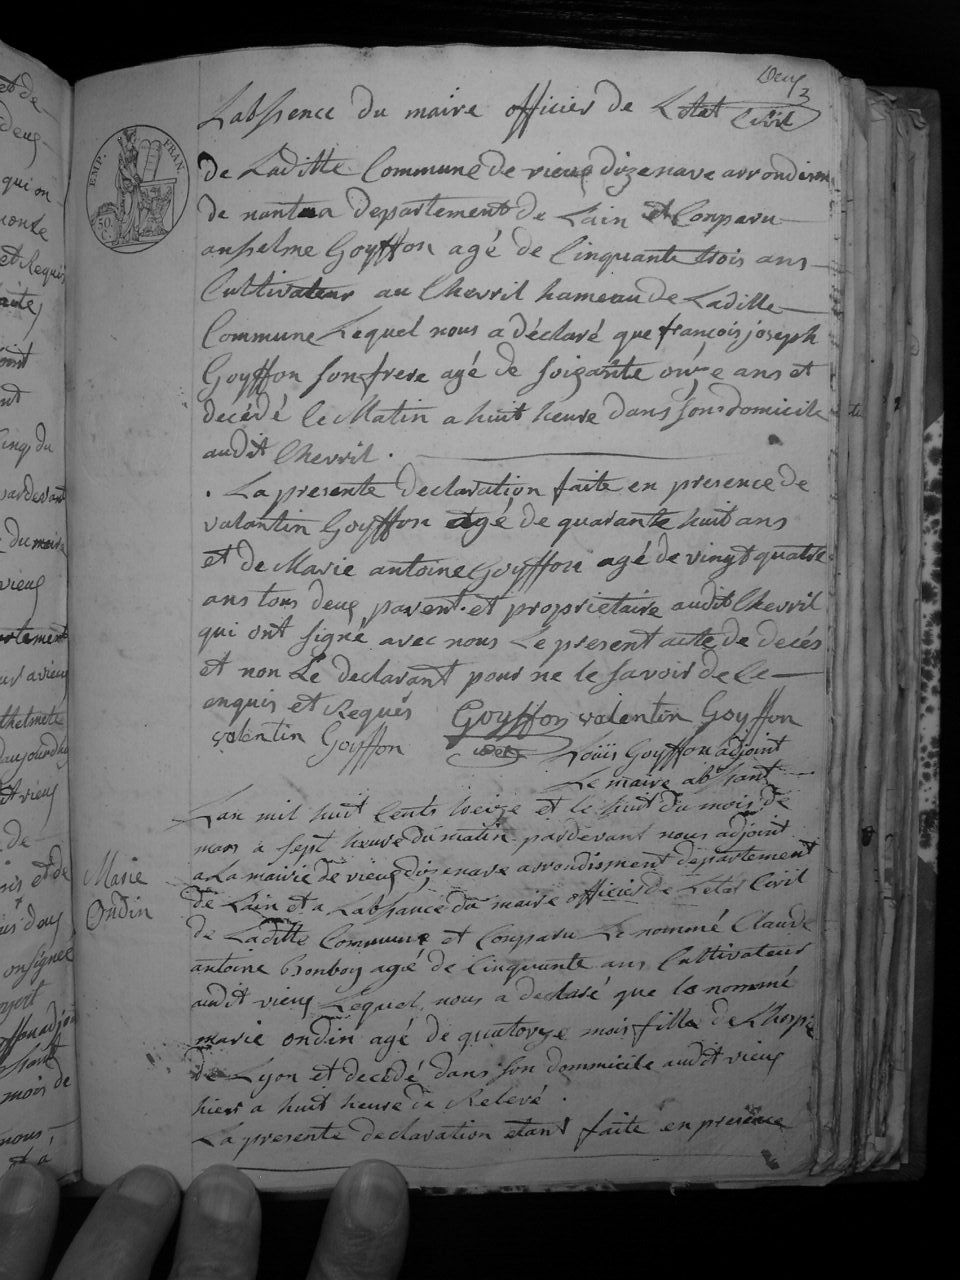 Deux
3
Labsence du maire officier de Letat Civil
de Laditte Commune de vieux dizenave arrondism
de nantua departement de Lain et Comparu
anselme Goyffon agé de Cinquante trois ans
Cultivateur au Chevril hameau de Laditte
Commune Lequel nous a déclaré que françois joseph
Goyffon son frere agé de soixante onze ans et
decédé le Matin a huit heure dans son domicile
audit Chevril .
. La presente declaration faite en presence de
valantin Goyffon agé de quarante huit ans
et de Marie antoine Goyffon agé de vingt quatre
ans tous deux parent et proprietaire audit Chevril
qui ont signé avec nous Le present acte de decés
et non Le declarant pour ne le savoir de Ce
enquis et Requés
Goyffon valentin Goyffon
valentin Goyffon
Loüis Goyffon adjoint
Le maire absant
Lan mil huit Cents treize et le huit du mois de
mars a sept heure du matin pardevant nous adjoint
a La mairie de vieux dizenave arrondisment departement
de Lain et a Labsance du maire officier de Letat Civil
de Laditte Commune et Comparu Le nommé Claude
antoine Bonboy agé de Cinquante ans Cultivateur
audit vieux Lequel nous a declaré que la nommé
marie ondin agé de quatorze mois fille de Lhospi
de Lyon et decedé dans son dommicile audit vieux
hier a huit heure de Relevé .
La presente declaration etant faite en presence
Marie
Ondin
EMP. FRAN.
50
C.